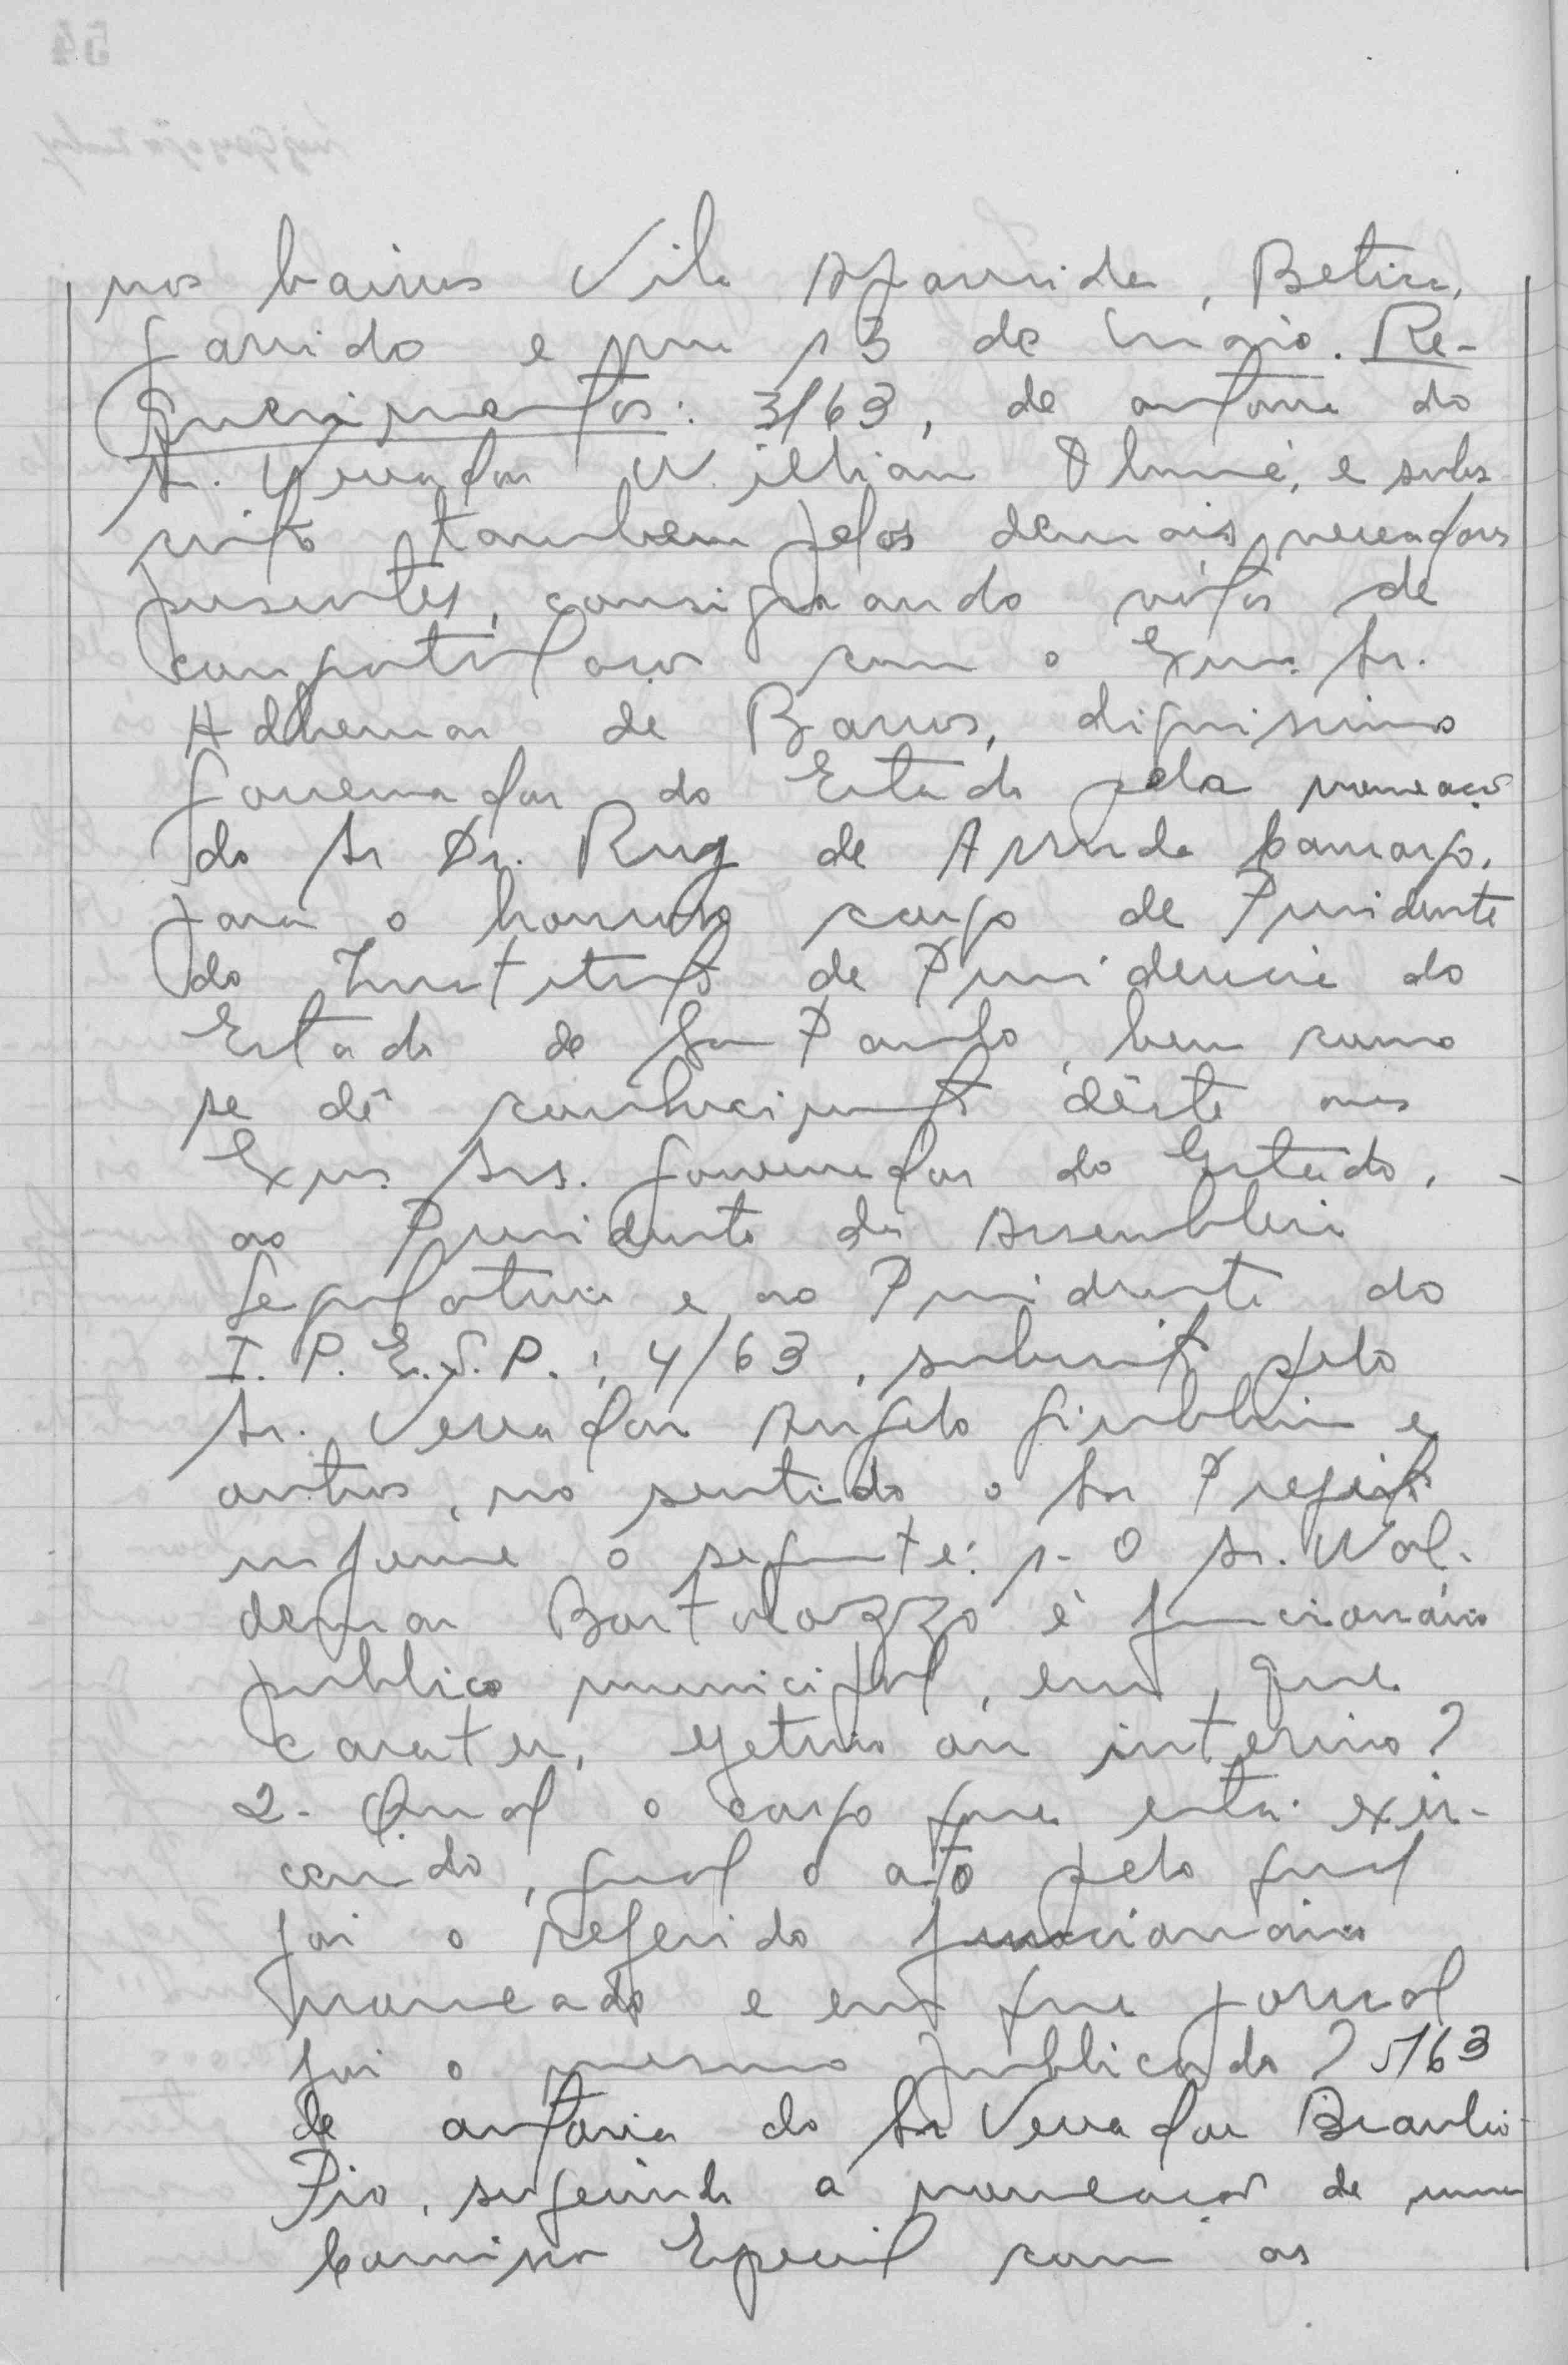 nos bairros Vila Aparecida, Betica,
Garrido e rua 13 de Maio. Re-
querimentos: 3/63, de autoria do
Sr. Vereador Willian e subs
crito tambem pelos demais vereadores
presentes, consignando vótos de
congratulações com o Exmo. Sr.
Adhemar de Barros, dignissimo
Governador do Estado pela nomeação
do Sr Dr. Ruy de Arruda Camargo,
para o honroso cargo de Presidente
do Instituto de Previdencia do
Estado de São Paulo, bem como
se dê conhecimento dêste aos
Exmo. Srs. Governador do Estado,
ao Presidente da Assembleia
Legislativa e ao Presidente do
I.P.E.S.P.; 4/63, subscrito pelo
Sr. Vereador Angelo e
outros, no sentido o Sr Prefeito
informe o seguinte: 1- O Sr. Wal-
demar Bartolozzo é funcionário
publico municipal, em que
carater, efetivo ou interino?
2- Qual o cargo que está exer-
cendo, qual o ato pelo qual
foi o referido funcionário
nomeado e em que jornal
foi o mesmo publicado? 5/63
de autoria do Sr Vereador Braulio
Pio, sugerindo a nomeação de uma
Comissão Especial com os